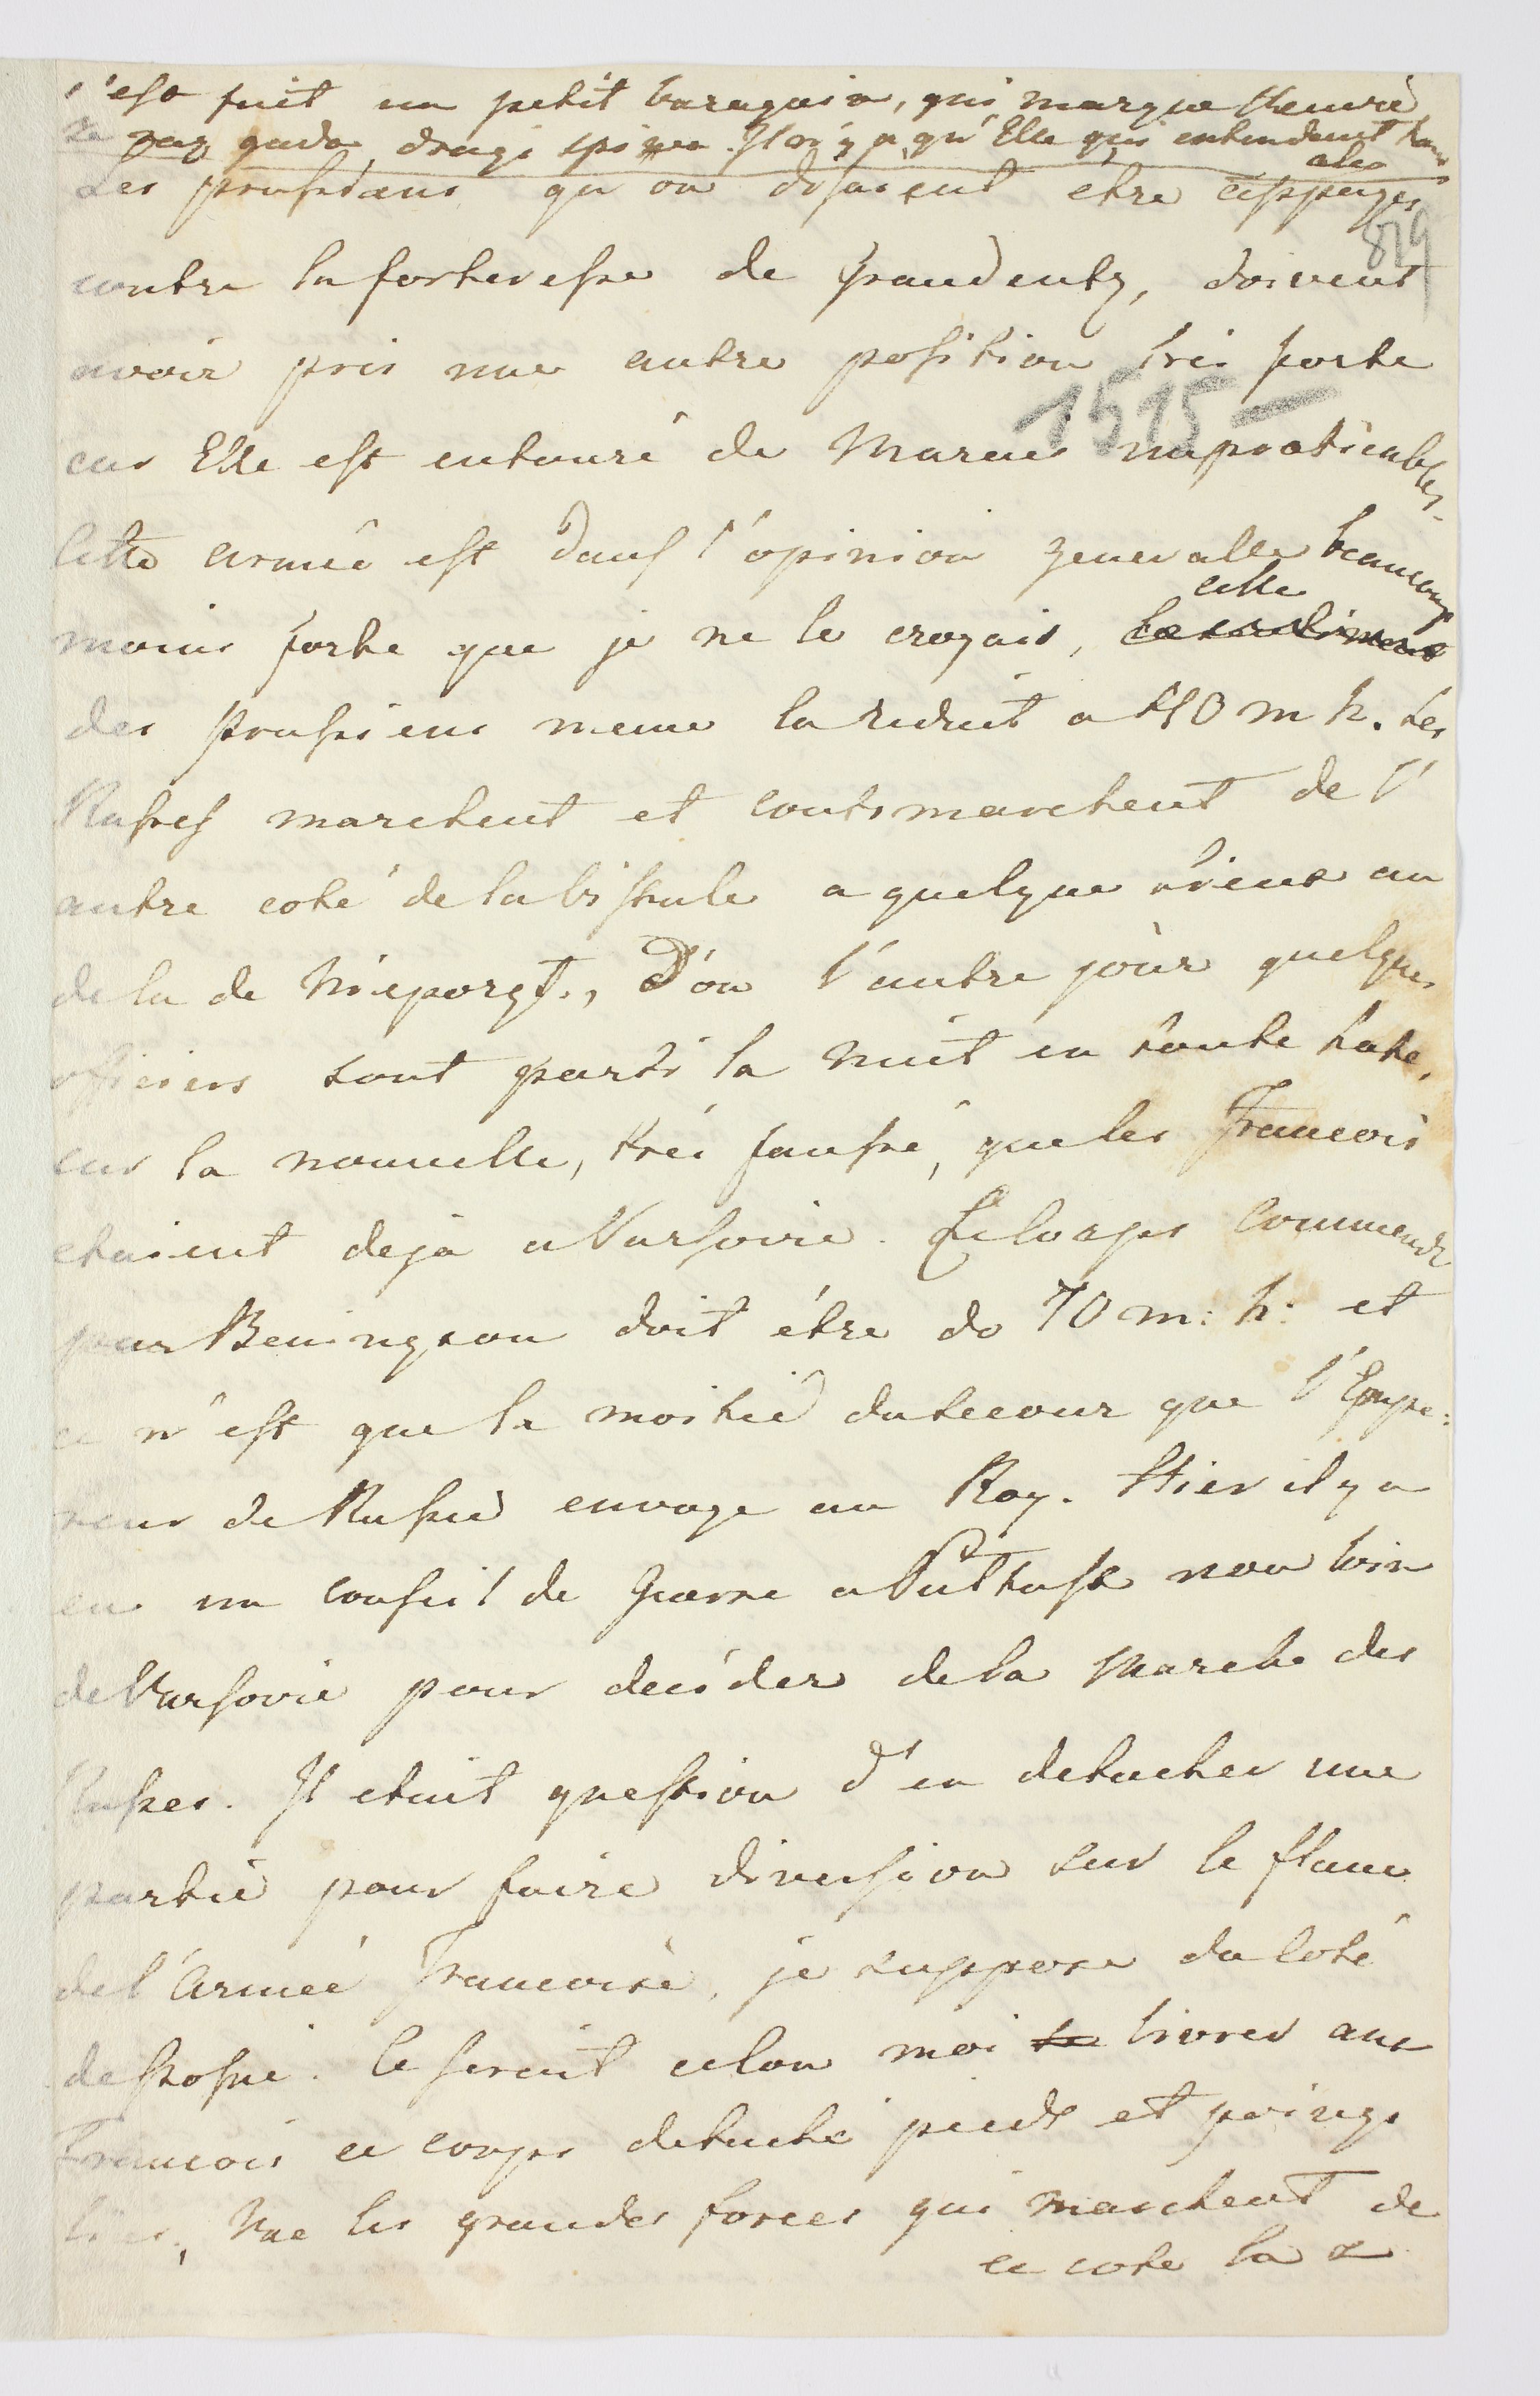 s'est fait un petit baragouin, qui marque l'heure
raz gada, drugi spiewa. Il n'y a qu'Elle qui entendent
Les prussiens qu'on disaient etre appuyes
819
contre la forteresse de Graudentz, doivent
avoir pris une autre position tres forte
1515 —
car Elle est entouré de Marais inpraticables.
Cette armée est dans l'opinion generalle beaucoup
celle
moins forte que je ne le croyais,
des prussiens meme la reduit a 40 m h. Les
Russes marchent et contremarchent de l'
autre coté de la Vistule a quelque lieux au
dela de Nieporęt, D'ou l'autre jour quelques
officiers sont parti la nuit en toute hate,
sur la nouvelle, tres fausse, que les Francois
etaient deja a Varsovie. Le Corps Commendé
par Beningson doit étre de 70 m: h: et
ce n'est que la moitié du secour que l'Empe:
reur de Russie envoye au Roy. Hier il y a
eu un conseil de Guerre a Pultusk non loin
de Varsovie pour decider de la Marche des
Russes. Il etait question d'en detacher une
partie pour faire diversion sur le flanc
de l'Armée Francoise, je suppose du Coté
de Posnie. Ce serait celon moi livrer aux
Francois ce corps detaché pieds et poings
liées, Vue les grandes forces qui marchent de
ce coté la